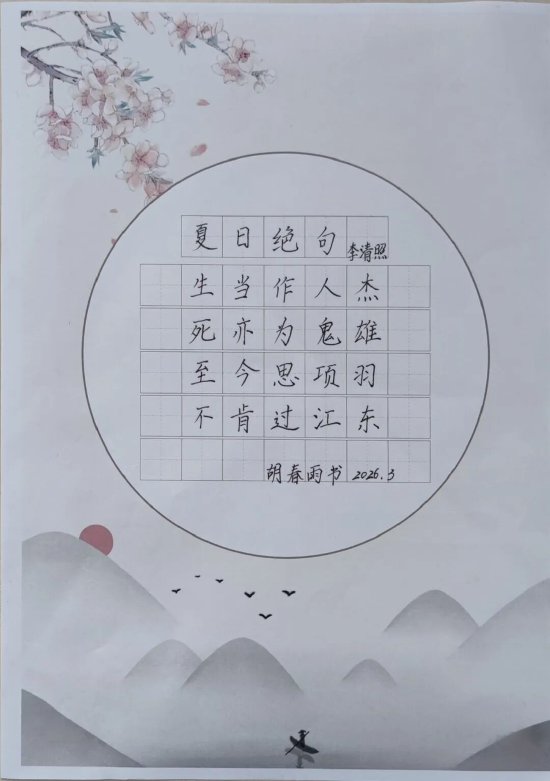 夏日绝句 李清照
生当作人杰
死亦为鬼雄
至今思项羽
不肯过江东
胡春雨书 2026.3